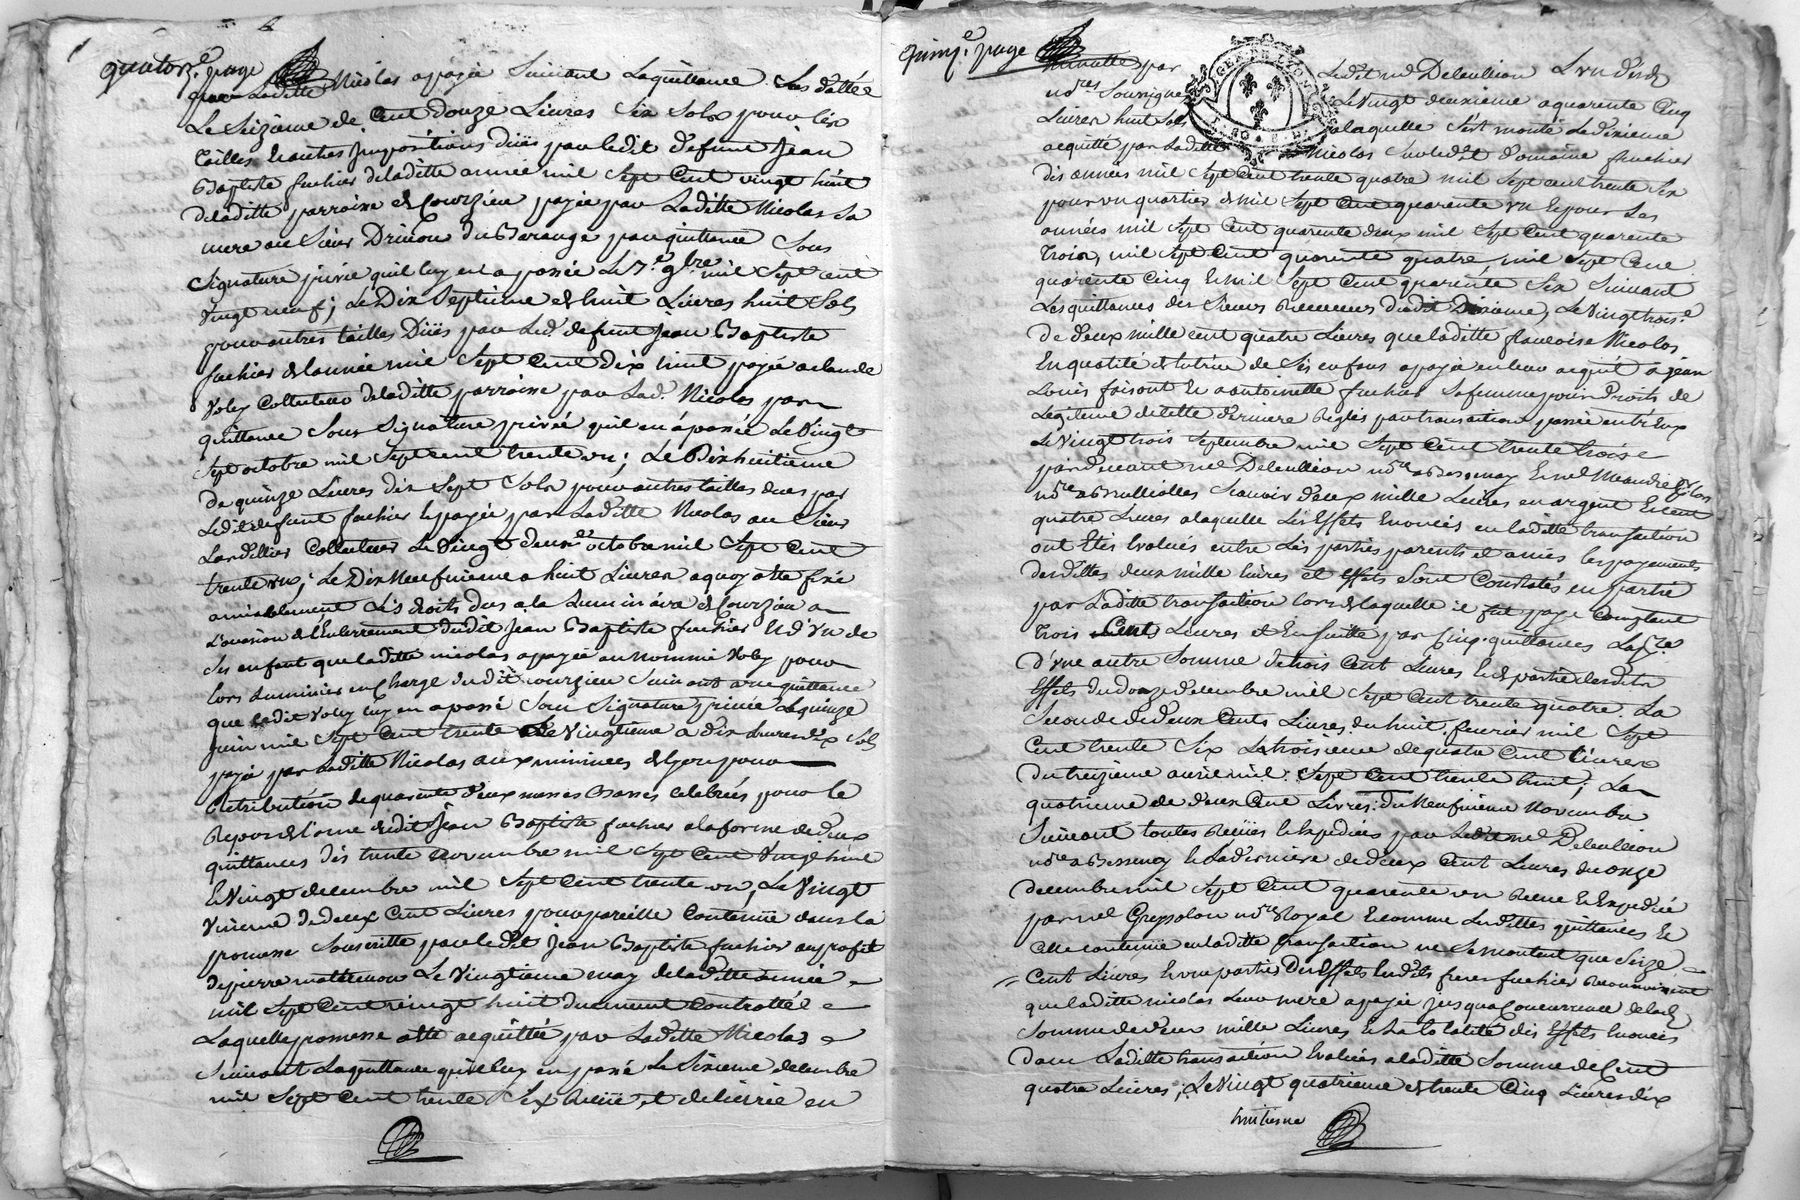 quatorze page
que laditte Nicolas a payée suivant la quittance
le seizieme de cent douze livres six sols pour les
tailles et autres impositions düës par ledit defunt Jean
Baptiste fuchier de laditte année mil sept cent vingt huit
de laditte parroisse de Courzieu payée par laditte Nicolas sa
mere au sieur Drivon du Barange par quittance sous
signature privée qu'il luy en a passée le 7e 9bre mil sept cent
vingt neuf ; le dix septieme de huit livres huit sols
pour autres tailles düës par led. defunt Jean Baptiste
fuchier de l'année mil sept cent dix huit payée a claude
Voley Collecteur de laditte parroisse par lad. Nicolas par
quittance sous signature privée qu'il en a passée le vingt
sept octobre mil sept cent trente un ; le Dix huitième
de quinze livres dix sept sols pour autres tailles dues par
ledit defunt fuchier et payée par laditte Nicolas au sieur
Collecteur le vingt octobre mil sept cent
trente un ; le Dix Neufvieme a huit livres a quoy a été fixé
amiablement les droits dus a la Luminaire de Courzieu a
l'occasion de l'Enterrement dudit Jean Baptiste fuchier et d'un de
ses enfant que laditte nicolas a payée au nommé Voley pour
lors luminier en charge dudit Courzieu suivant une quittance
que ledit Voley luy en a passé sous signature privée le quinze
juin mil sept cent trente le vingtieme a dix livres dix sols
payée par laditte Nicolas aux minimes de Lyon pour
Retribution de quarente deux messes basses celebrées pour le
Repos de l'ame dudit Jean Baptiste fuchier a la forme de deux
quittances des trente novembre mil sept cent vingt huit
et vingt decembre mil sept cent trente un, le vingt
unieme de deux cent livres pour pareille contenüe dans la
promesse souscritte par ledit Jean Baptiste fuchier au profit
de pierre le vingtieme may de laditte année
mil sept cent vingt huit duement controttée
laquelle promesse a été acquittée par laditte Nicolas
suivant la quittance qu'il luy en passé le sixieme decembre
mil sept cent trente six Recüe et delivrée en
quinze. page
minutte par ledit me Deleullion l'un d'esd.
nores soussignés le vingt deuxieme a quarente cinq
livres huit sols a laquelle s'est monté le dixieme
acquitté par laditte Nicolas sur ledit domaine fuchier
des années mil sept cent trente quatre mil sept cent trente six
pour un quartier de mil sept cent quarente un et pour les
années mil sept cent quarente deux mil sept cent quarente
trois, mil sept cent quarente quatre mil sept cent
quarente cinq et mil sept cent quarente six suivant
les quittances des sieurs Receveurs dudit Dixieme, le vingt troise
de deux mille cent quatre livres que laditte francoise Nicolas
en qualité de tutrice de ses enfans a payée en leur acquit a jean
Louis faisant et a antoinette fuchier sa femme pour Droits de
legitime de cette derniere Reglés par transaction passée entr'eux
le vingt trois septembre mil sept cent trente trois
pardevant me Deleullion nore a Bessenay et me
nore a Brullioles scavoir deux mille livres en argent et cent
quatre livres a laquelle les Effets Enoncés en laditte transaction
ont Etés Evalués entre les parties parents et amis les payements
desdittes deux mille livres et effets sont Constatés en partie
par laditte transaction lors de laquelle il fut payé Comptant
trois Cents livres et Ensuitte par cinq quittances la pre
d'une autre somme de trois cent livres et de partie desdits
Effets du douze decembre mil sept cent trente quatre la
seconde de deux cents livres du huit fevrier mil sept
cent trente six la troisieme de quatre cent livres
du treizieme avril mil sept cent trente huit ; la
quatrieme de deux cent livres du Neufvieme Novembre
suivant toutes Recües et Expediées par ledit me Delullion
nore a Bessenay et la derniere de deux cent livres du onze
decembre mil sept cent quarente un Recue et Expediée
par me Greysolon nore Royal Et comme lesdittes quittances et
celle contenüe en laditte transaction ne se montent que seize
cent livres et une partie des Effets lesdits freres fuchier Reconnoissent
que laditte nicolas leur mere a payée jusqua Concurrence de lad.
somme de deux mille livres et la totalité des Effets Enoncés
dans laditte transaction Evalués a laditte somme de Cent
quatre livres ; le vingt quatrieme de trente cinq livres dix
huitieme